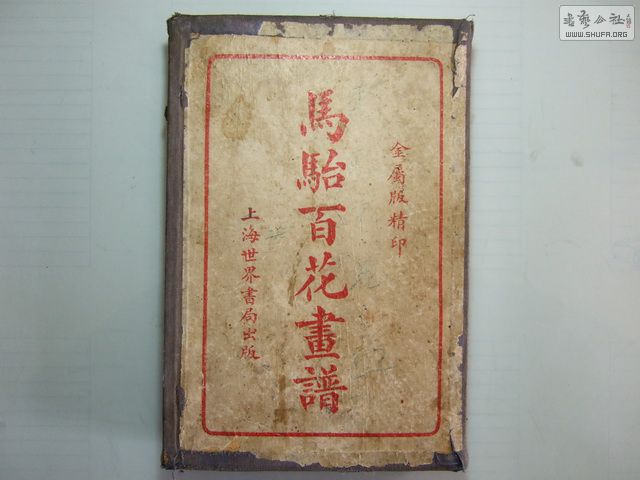 金屬版精印
馬駘百花畫譜
上海世界書局出版
書藝公社
WWW.SHUFA.ORG